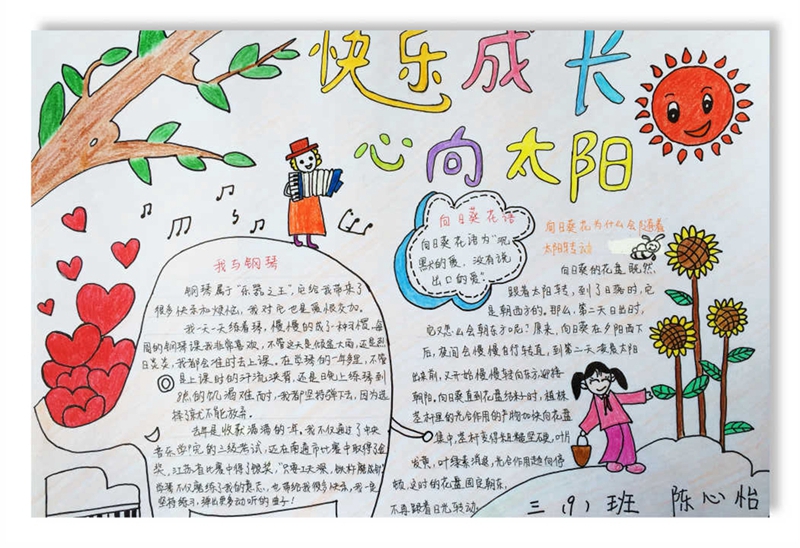 快乐成长
心向太阳
我与钢琴
钢琴属于"乐器之王",它给我带来了
很多快乐和烦恼,我对它也是爱恨交加。
我一天一天练着琴,慢慢的成了一种习惯。每
周的钢琴课我非常喜欢,不管这天是倾盆大雨,还是烈
日炎炎,我都会准时去上课。在学琴的一年多里,不管
是上课时的汗流浃背,还是日晚上练琴到
的饥渴难耐,我都坚持弹下去,因为选
择了就不能放弃。
去年是收获满满的年。我不仅通过了中央
音乐学院的三级考试,还在南通市比赛中取得了金
奖,江苏省比赛中得了银奖,"只要工夫深,铁杵磨成针"
学琴不仅磨练了我的意志,也带给我很多快乐,我一定
坚持练习,弹出更多动听的曲子!
向日葵花语
向日葵花语为"沉
默的爱,没有说
出口的爱"
向日葵花为什么会随着
太阳转动
向日葵的花盘既然,
跟着太阳转,到了日落时,它
是朝西方的。那么,第二天日出时,
它又怎么会朝东方呢?原来,向日葵在夕阳西下
后,夜间会慢慢自行转直,到第二天凌晨太阳
出来前,又开始慢慢转向东方迎接
朝阳。向日葵直到花盘终籽时,植株
茎杆里的光合作用的产物加快向花盘
集中,茎杆变得粗糙坚硬,叶片
发黄,叶绿素消退,光合作用趋向停
顿,这时的花盘固定朝东,
不再跟着日光转动。
三(9)班 陈心怡